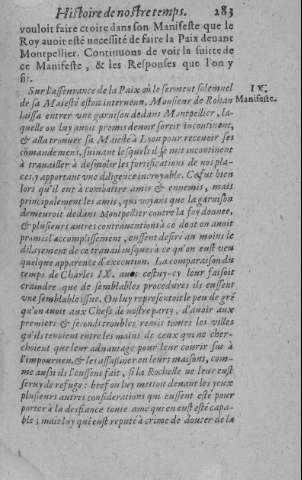 Histoire de nostre temps. 283
vouloit faire croire dans son Manifeste que le
Roy auoit esté necessité de faire la Paix deuant
Montpellier. Continuons de voir la suitte de
ce Manifeste, & les Responses que l'on y
fit.
Sur l'asseurance de la Paix où le serment solemnel
IX.
de sa Maiesté estoit interuenu, Monsieur de Rohan
Manifeste.
laissa entrer vne garnison dedans Montpellier, la-
quelle on luy auoit promis de mont sortir incontinent,
& alla trouuer sa Maiesté à Lyon pour receuoir ses
cōmandemens, suiuant lesquels il se mit incontinent
à trauailler à desmolir les fortifications de nos pla-
ces, y apportant vne diligence incroyable. Ce fut bien
lors qu'il eut à combattre amis & ennemis, mais
principalement les amis, qui voyans que la garnison
demeuroit dedans Montpellier contre la foy donnee,
& plusieurs autres contrauentions à ce dont on auoit
promis l'accomplissement, eussent desiré au moins le
dilayement de ce trauail iusques à ce qu'on eust veu
quelque apparence d'execution. La comparaison du
temps de Charles IX. auec cestuy-cy leur faisoit
craindre que de semblables procedures ils eussent
vne semblable issuë. On luy representoit le peu de gré
qu'on auoit aux Chefs de nostre party, d'auoir aux
premiers & seconds troubles remis toutes les villes
qu'ils tenoient entre les mains de ceux qui ne cher-
choient que leur aduantage pour leur courir sus à
l'impourueu, & les assassiner en leurs maisons, com-
me aussi ils l'eussent fait, si la Rochelle ne leur eust
seruy de refuge: bref on luy mettoit deuant les yeux
plusieurs autres considerations qui eussent esté pour
porter à la desfiance toute ame qui en eust esté capa-
ble; mais luy qui eust reputé à crime de douter de la